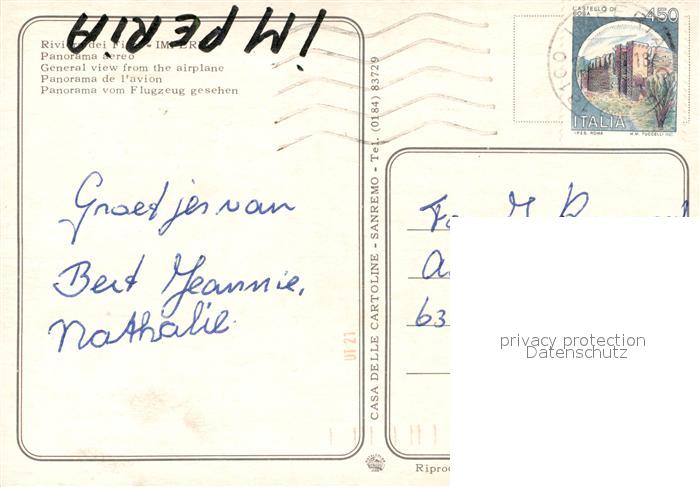 iMPERiA
Riviera dei Fiori - IMPERIA
Panorama aereo
General view from the airplane
Panorama de l'avion
Panorama vom Flugzeug gesehen
Groetjes van
Bert Jeannie,
Nathalie
CASA DELLE CARTOLINE - SANREMO - Tel. (0184) 83729
CASTELLO DI
BOSA
450
ITALIA
I.P.Z.S. ROMA
M.M. TUCCELLI
63
privacy protection
Datenschutz